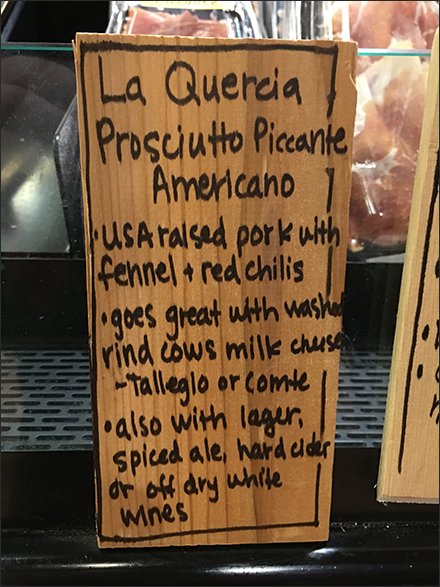 La Quercia
Prosciutto Piccante
Americano
• USA raised pork with
fennel + red chilis
• goes great with washed
rind cows milk cheese
- Tallegio or Comte
• also with lager,
spiced ale, hard cider
or off dry white
wines